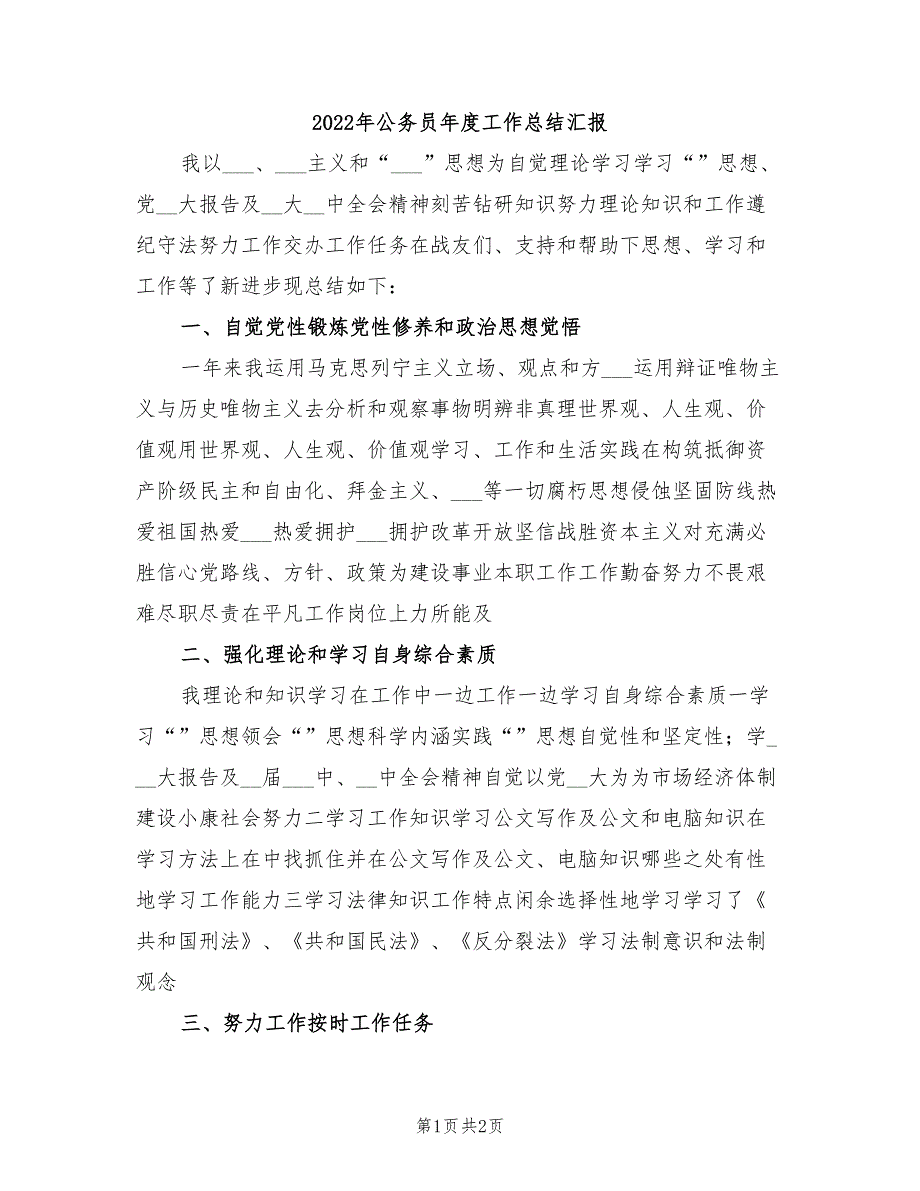 2022年公务员年度工作总结汇报
我以___、___主义和“___”思想为自觉理论学习学习“”思想、
党__大报告及__大__中全会精神刻苦钻研知识努力理论知识和工作遵
纪守法努力工作交办工作任务在战友们、支持和帮助下思想、学习和
工作等了新进步现总结如下：
一、自觉党性锻炼党性修养和政治思想觉悟
一年来我运用马克思列宁主义立场、观点和方___运用辩证唯物主
义与历史唯物主义去分析和观察事物明辨非真理世界观、人生观、价
值观用世界观、人生观、价值观学习、工作和生活实践在构筑抵御资
产阶级民主和自由化、拜金主义、___等一切腐朽思想侵蚀坚固防线热
爱祖国热爱___热爱拥护___拥护改革开放坚信战胜资本主义对充满必
胜信心党路线、方针、政策为建设事业本职工作工作勤奋努力不畏艰
难尽职尽责在平凡工作岗位上力所能及
二、强化理论和学习自身综合素质
我理论和知识学习在工作中一边工作一边学习自身综合素质一学
习“”思想领会“”思想科学内涵实践“”思想自觉性和坚定性；学_
__大报告及__届___中、__中全会精神自觉以党__大为为市场经济体制
建设小康社会努力二学习工作知识学习公文写作及公文和电脑知识在
学习方法上在中找抓住并在公文写作及公文、电脑知识哪些之处有性
地学习工作能力三学习法律知识工作特点闲余选择性地学习学习了《
共和国刑法》、《共和国民法》、《反分裂法》学习法制意识和法制
观念
三、努力工作按时工作任务
第1页共2页